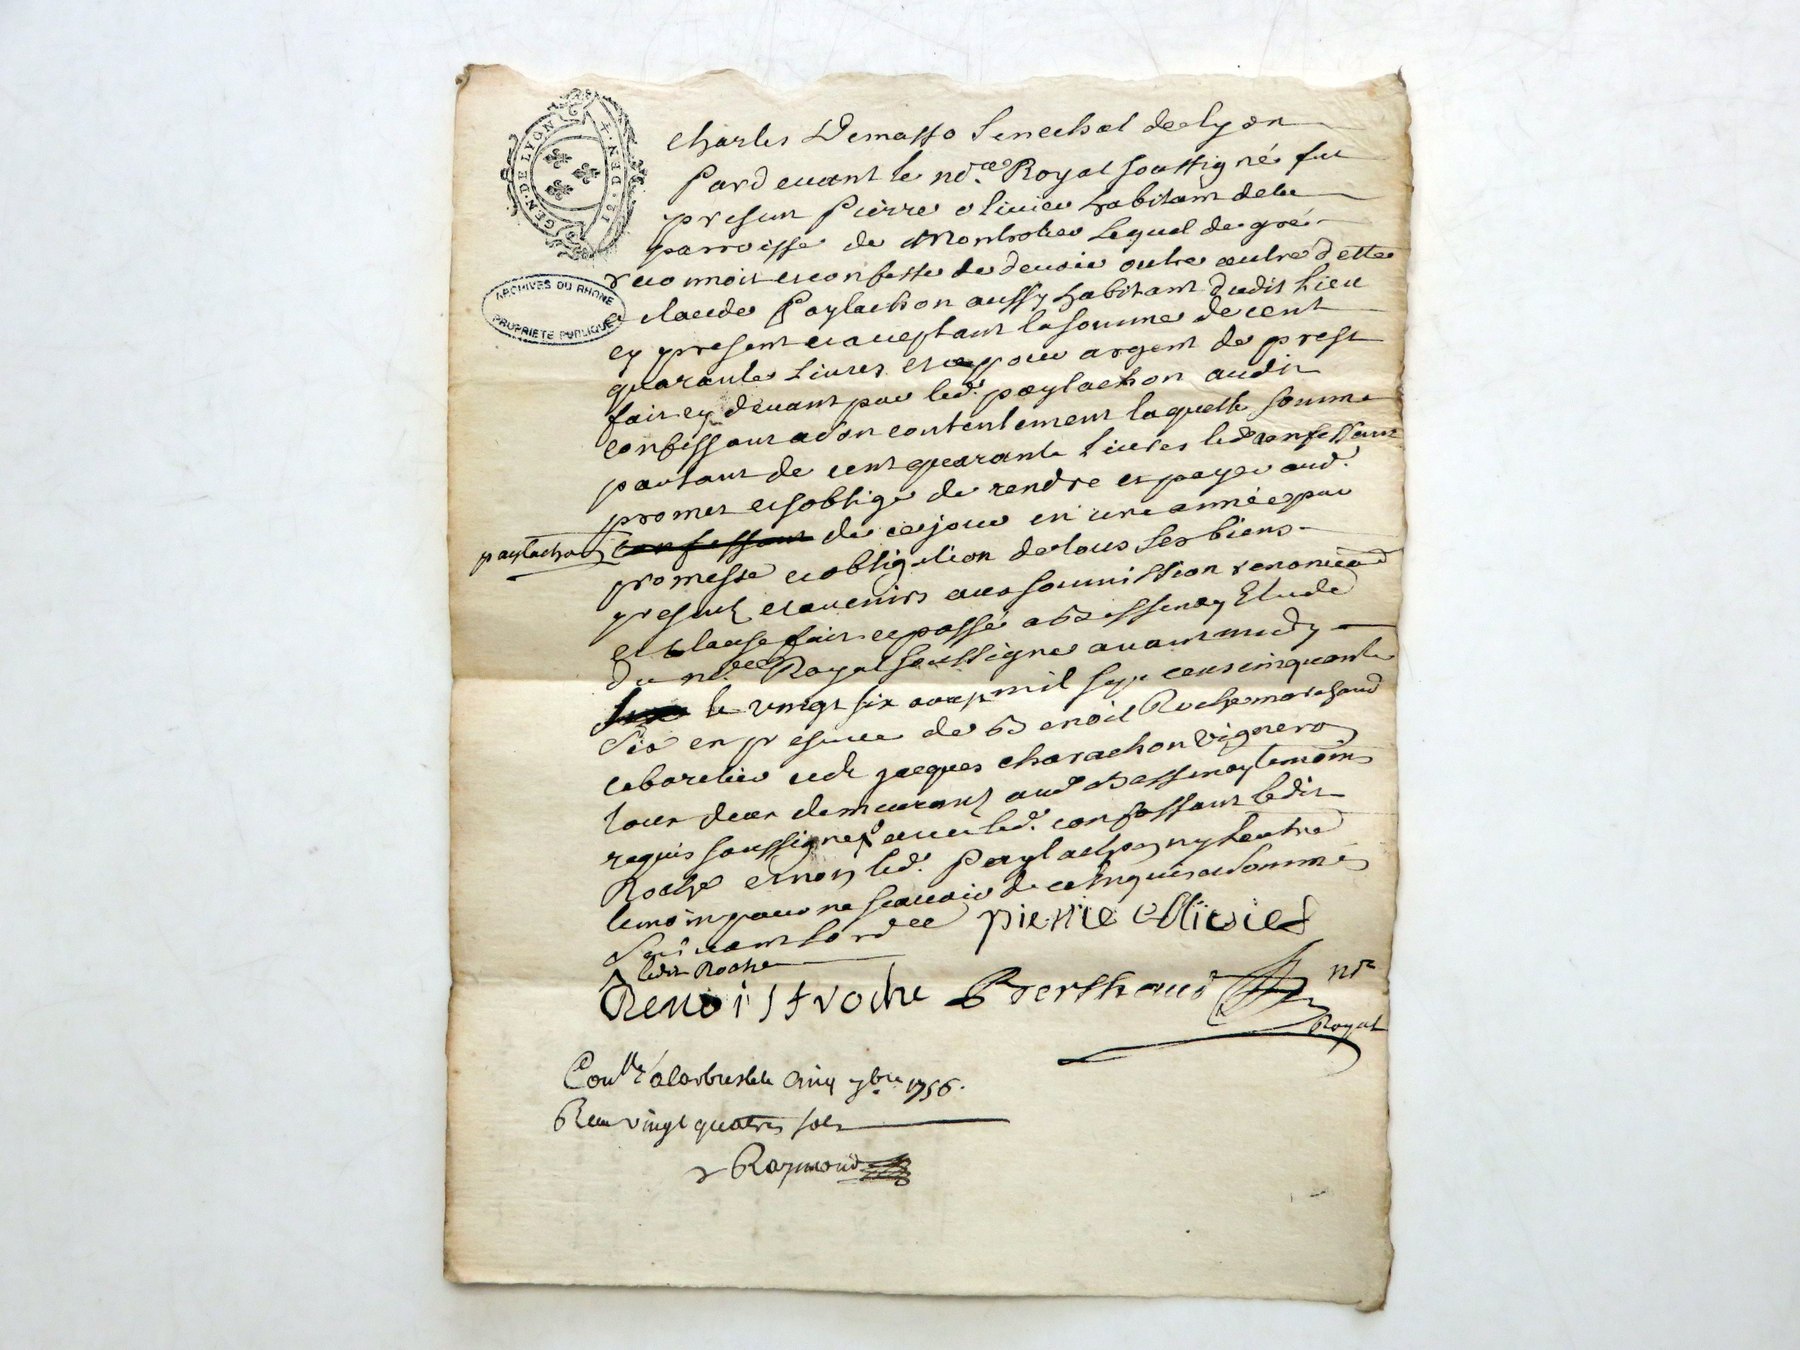 GEN · DE LYON · 12 DEN ·
ARCHIVES DU RHONE
PROPRIETE PUBLIQUE
Charles Demasso Senechal de Lyon
Pardevant le no.re Royal soussigné fut
present Pierre olivier habitant de la
parroisse de lequel de gré
reconnoit et confesse de devoir outre autre dette
a claude Paylachon aussy habitant dudit lieu
cy present et acceptant la somme de cent
quarante livres et ce pour argent de prest
fait cy devant par led. paylachon audit
confessant a son contentement laquelle somme
partant de cent quarante livres led. confessant
promet et soblige de rendre et payer aud.
paylachon confessant de ce jour en une année par
promesse et obligation de tous ses biens
presents et avenirs avec soumission renonciaõ
et clause fait et passé a Bessenay Etude
du no.re Royal soussigne avant midy
le vingt six aoust mil sept cens cinquante
six en presence de Benoit Roche marchand
cabaretier et de jacques charachon vigneron
tous deux demeurants aud. Bessenay temoins
requis soussignes avec led. confessant ledit
Roche et non led. Paylachon ny lautre
temoin pour ne scavoir de ce enquis et sommés
suivant lord.ce pierre ollivier
ledit Roche
Benoist roche Berthaud no.re
Royal
Con.llé a larbresle le cinq 7bre 1756.
Recu vingt quatre sols
Raymond